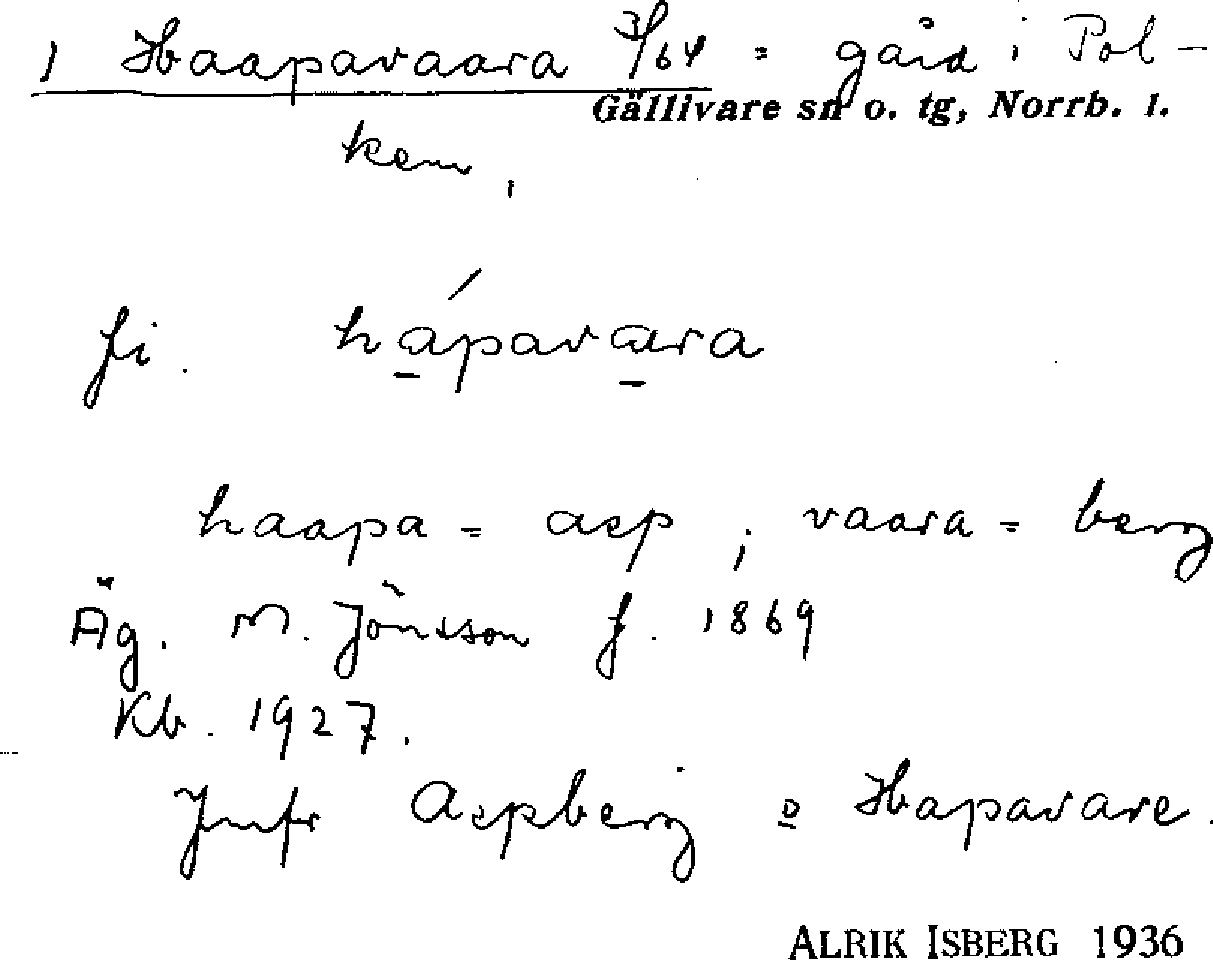 1 Haapavaara 3/64 = gård i Pol-
Gällivare sn o. tg, Norrb. l.
ken,
fi. hápavara
haapa = asp ; vaara = berg
Äg. M. Jönsson f. 1869
Kb. 1927.
Jmfr Aspberg o Hapavare.
ALRIK ISBERG 1936